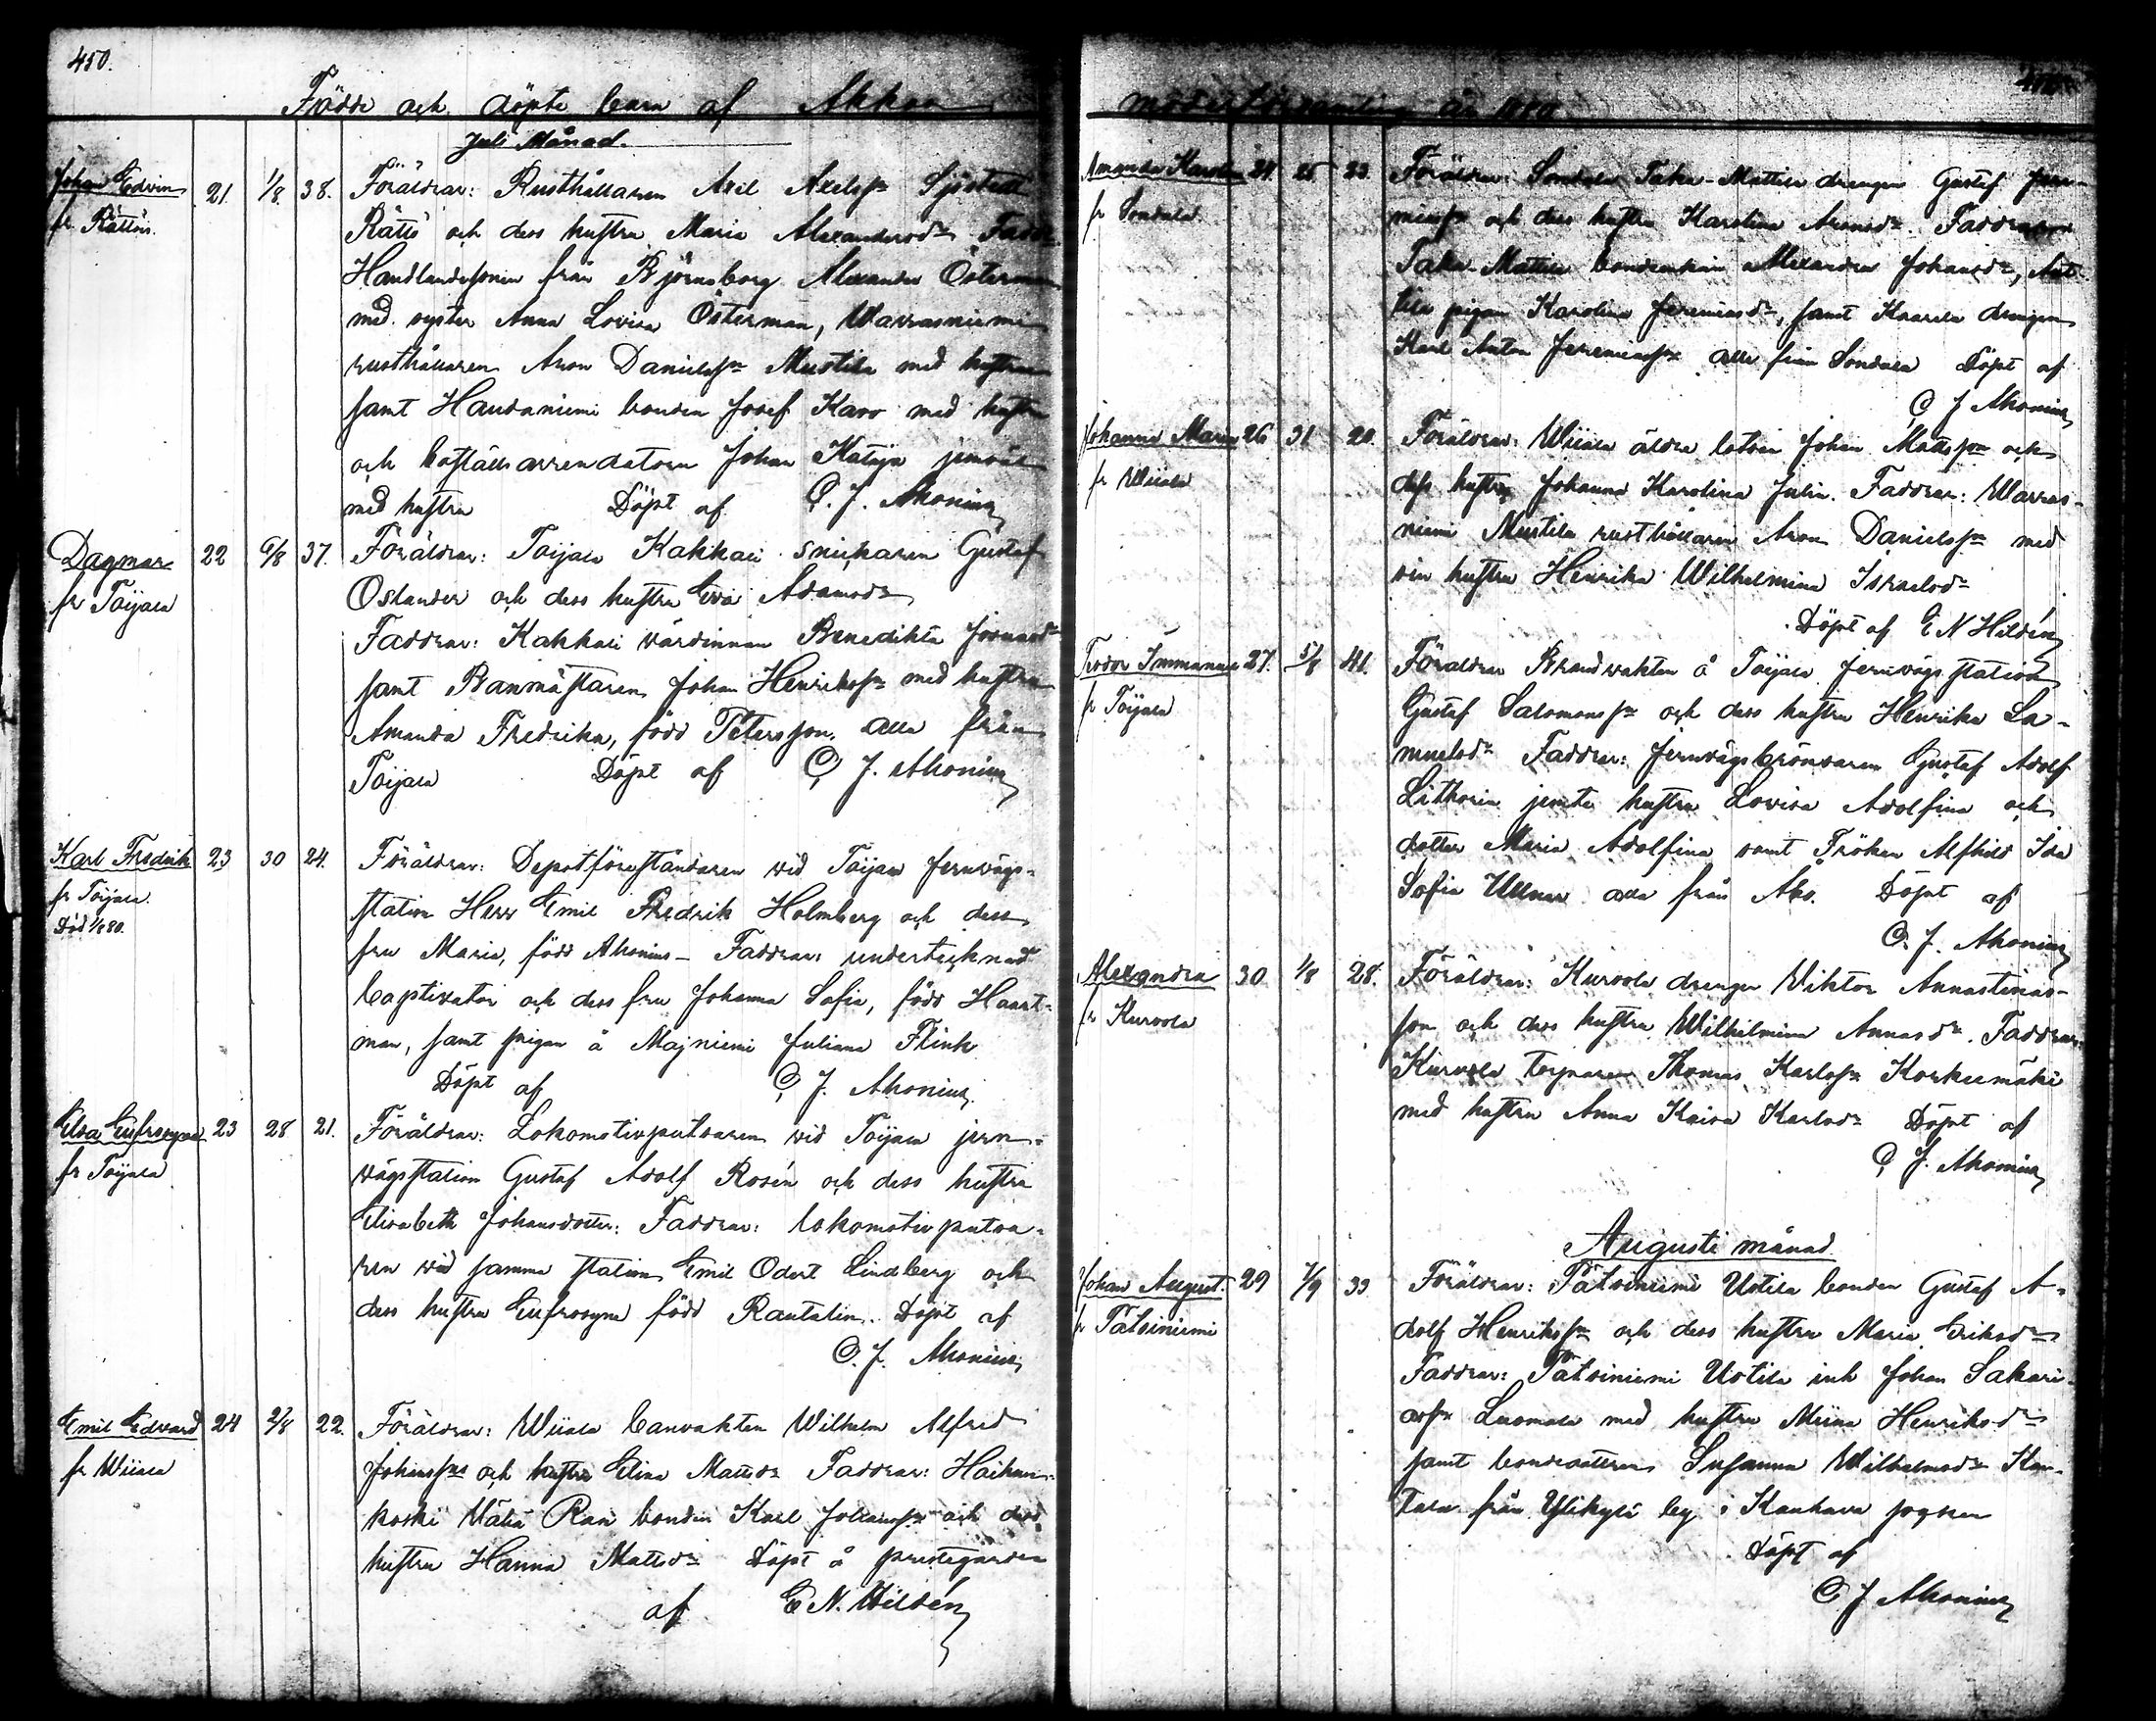 450.
Födde och döpte barn af Akkaa
Juli Månad.
Johan Edvin 21. 1/8 38. Föräldrar: Rusthållaren Axel Axelsson Sjöstedt
fr Rättö. Rättö och dess hustru Maria Alexandersdr Fadd
Handlandesonen från Björneborg Alexander Österman
med syster Anna Lovisa Österman, Warrasniemi
rusthållaren Aron Danielsson Mustila med hustru
samt Haudaniemi bonden Josef Karo med hustru
och boställsarrendatorn Johan Kataja jemväl
med hustru Döpt af C. J. Ahonius
Dagmar 22 6/8 37. Föräldrar: Toijala Kakkari snickaren Gustaf
fr Toijala Oslander och dess hustru Eva Adamsdr
Faddrar: Kakkari värdinnan Benedikta Josuasdr
samt Banmästaren Johan Henriksson med hustru
Amanda Fredrika, född Petersson, alla från
Toijala Döpt af C. J. Ahonius
Karl Fredrik 23 30 24. Föräldrar: Depotföreståndaren vid Toijala Jernvägs-
fr Toijala. station Herr Emil Fredrik Holmberg och dess
Död 1/8 80. fru Maria, född Ahonius – Faddrar: undertecknad
baptisator och dess fru Johanna Sofia, född Haart-
man, samt pigan å Majniemi Juliana Flink
Döpt af C. J. Ahonius
Elsa Eufrosyne 23 28 21. Föräldrar: Lokomotivputsaren vid Toijala jern-
fr Toijala vägsstation Gustaf Adolf Rosén och dess hustru
Elisabeth Johansdotter: Faddrar: lokomotivputsa-
ren vid samma station Emil Odert Lindberg och
dess hustru Eufrosyne född Rantalin. Döpt af
C. J. Ahonius
Emil Edvard 24 2/8 22. Föräldrar: Wiiala banvakten Wilhelm Alfred
fr Wiiala Johansson och hustru Elina Mattsdr Faddrar: Haihun-
koski Rasi bonden Karl Johansson och dess
hustru Hanna Mattsdr Döpt å prestegården
af E. N. Hildén
moderförsamling år 1880
Amanda Karolina 24 25 23. Föräldrar: Sondala Taka-Mattila drengen Gustaf Jere-
fr Sondala miasson och dess hustru Karolina Aronsdr. Faddrar
Taka-Mattila bondenkan Alexandra Johansdr, Ant-
tila pigan Karolina Jeremiasdr, samt Kaarela drengen
Karl Anton Jeremiasson alla från Sondala Döpt af
C J Ahonius
Johanna Maria 26 31 20. Föräldrar: Wiiala äldre lotsen Johan Mattsson och
fr Wiiala dess hustru Johanna Karolina Julin. Faddrar: Warras-
niemi Mustila rusthållaren Aron Danielsson med
sin hustru Henrika Wilhelmina Israelsdr
Döpt af E N Hildén
Teodor Immanuel 27. 5/8 41. Föräldrar Brandvakten å Toijala Jernvägsstation
fr Toijala Gustaf Salomonsson och dess hustru Henrika Sa-
muelsdr Faddrar: Gustaf Adolf
Lithovin jemte hustru Lovisa Adolfina och
dotter Maria Adolfina samt Fröken Alfhild Ida
Sofia Ullner alla från Åbo. Döpt af
C. J. Ahonius
Alexandra 30 1/8 28. Föräldrar: Kurvola drengen Viktor Annastinas-
fr Kurvola son och dess hustru Wilhelmina Annasdr. Faddrar:
Kurvola torparen Thomas Karlsson Korkeemäki
med hustru Anna Kaisa Karlsdr Döpt af
C J. Ahonius
Augusti månad
Johan August. 29 7/9 33 Föräldrar: Pätsiniemi Uotila bonden Gustaf A-
fr Pätsiniemi dolf Henriksson och dess hustru Maria Eriksdr
Faddrar: Pätsiniemi Uotila inh Johan Sakari-
asson Luomala med hustru Miina Henriksdr
samt bondedottern Susanna Wilhelmsdr Kan-
tala från Ylikylä by i Kauhava socken
Döpt af
C J Ahonius